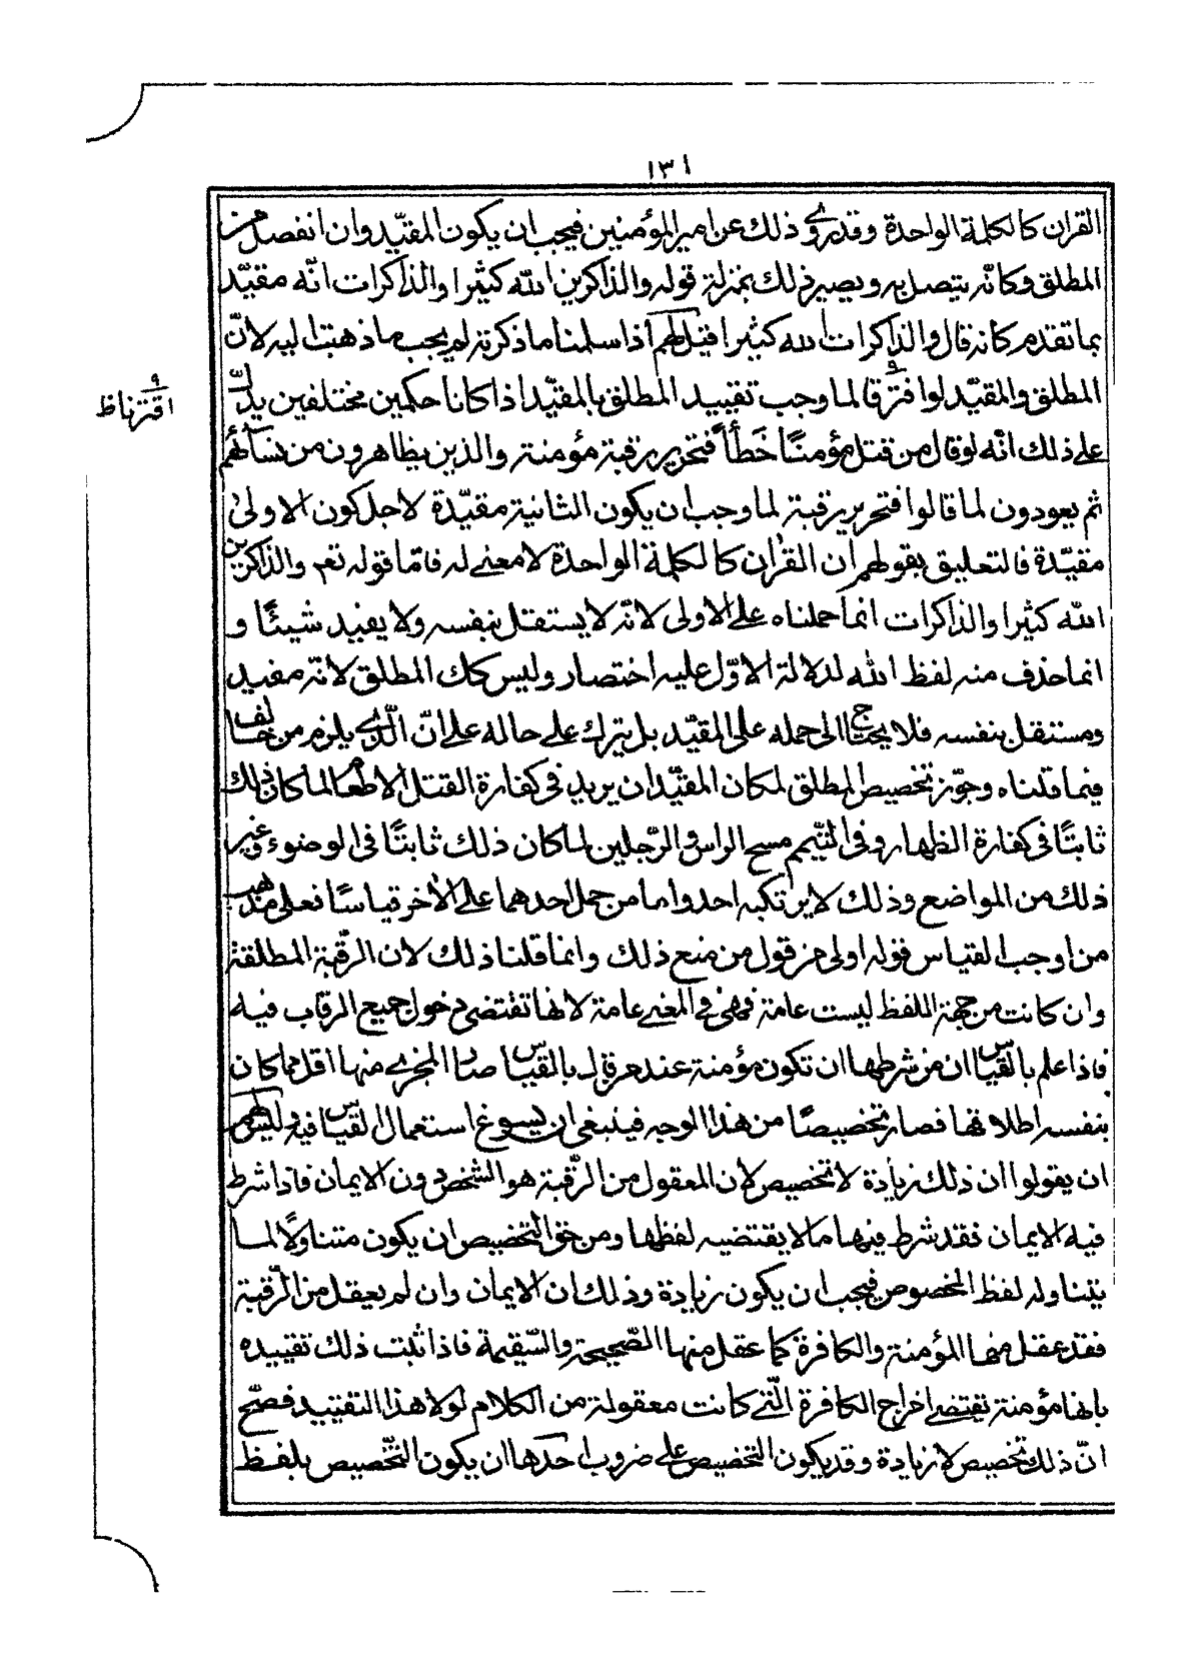 ١٣١
القران كالكلمة الواحدة وقد روى ذلك عن امير المؤمنين فيجب ان يكون المقيّد وان انفصل من
المطلق وكانّه يتصل به ويصير ذلك بمنزلة قوله والذاكرين الله كثيرا والذاكرات انّه مقيّد
بما تقدم كانه قال والذاكرات الله كثيرا قيل لهم اذا سلمنا ما ذكرته لم يجب ما ذهبت اليه لانّ
المطلق والمقيّد لو افترقا لما وجب تقييد المطلق بالمقيّد اذا كانا حكمين مختلفين يدلّ
اقترنا ظ
على ذلك انّه لو قال من قتل مؤمنًا خَطَأً فتحرير رقبة مؤمنة والذين يظاهرون من نسآئهم
ثم يعودون لما قالوا فتحرير رقبة لما وجب ان يكون الثانية مقيّدة لاجل كون الاولى
مقيّدة فالتعليق بقولهم ان القران كالكلمة الواحدة لا معنى له فامّا قوله تعم والذاكرين
الله كثيرا والذاكرات انما حملناه على الاولى لانّه لا يستقل بنفسه ولا يفيد شيئًا و
انما حذف منه لفظ الله لدلالة الاوّل عليه اختصار وليس كك المطلق لانّه مفيد
ومستقل بنفسه فلا يحتاج الى حمله على المقيّد بل يترك على حاله على انّ الّذى يلزم من خالف
فيما قلناه وجوّز تخصيص المطلق لمكان المقيّد ان يريد فى كفارة القتل الاطعام لما كان ذلك
ثابتًا فى كفارة الظهار وفى التيّمم مسح الراس والرّجلين لما كان ذلك ثابتًا فى الوضوء وغير
ذلك من المواضع وذلك لا يرتكبه احد واما من حمل احدهما على الاخر قياسًا فعلى مذهب
من اوجب القياس فوله اولى من قول من منع ذلك وانما قلنا ذلك لان الرّقبة المطلقة
وان كانت من جهة اللفظ ليست عامة فهى فى المعنى عامة لانها تقتضى دخول جميع الرقاب فيه
فاذا علم بالقياس ان من شرطها ان تكون مؤمنة عند من قال بالقياس صار المجزى منها اقل مما كان
بنفسه اطلاقها فصار تخصيصًا من هذا الوجه فينبغى ان يسوغ استعمال القياس فيه وليس لهم
ان يقولوا ان ذلك زيادة لا تخصيص لان المعقول من الرّقبة هو الشخص دون الايمان فاذا شرط
فيه الايمان فقد شرط فيها ما لا يقتضيه لفظها ومن حق التخصيص ان يكون متناولًا لما
يتناوله لفظ المخصوص فيجب ان يكون زيادة وذلك ان الايمان وان لم يعقل من الرّقبة
فقد عقل منها المؤمنة والكافرة كما عقل منها الصّحيحة والسّقيمة فاذا ثبت ذلك تقييده
بانها مؤمنة يقتضى اخراج الكافرة الّتى كانت معقولة من الكلام لولا هذا التقييد فصحّ
انّ ذلك تخصيص لا زيادة وقد يكون التخصيص على ضروب احدها ان يكون التخصيص بلفظ